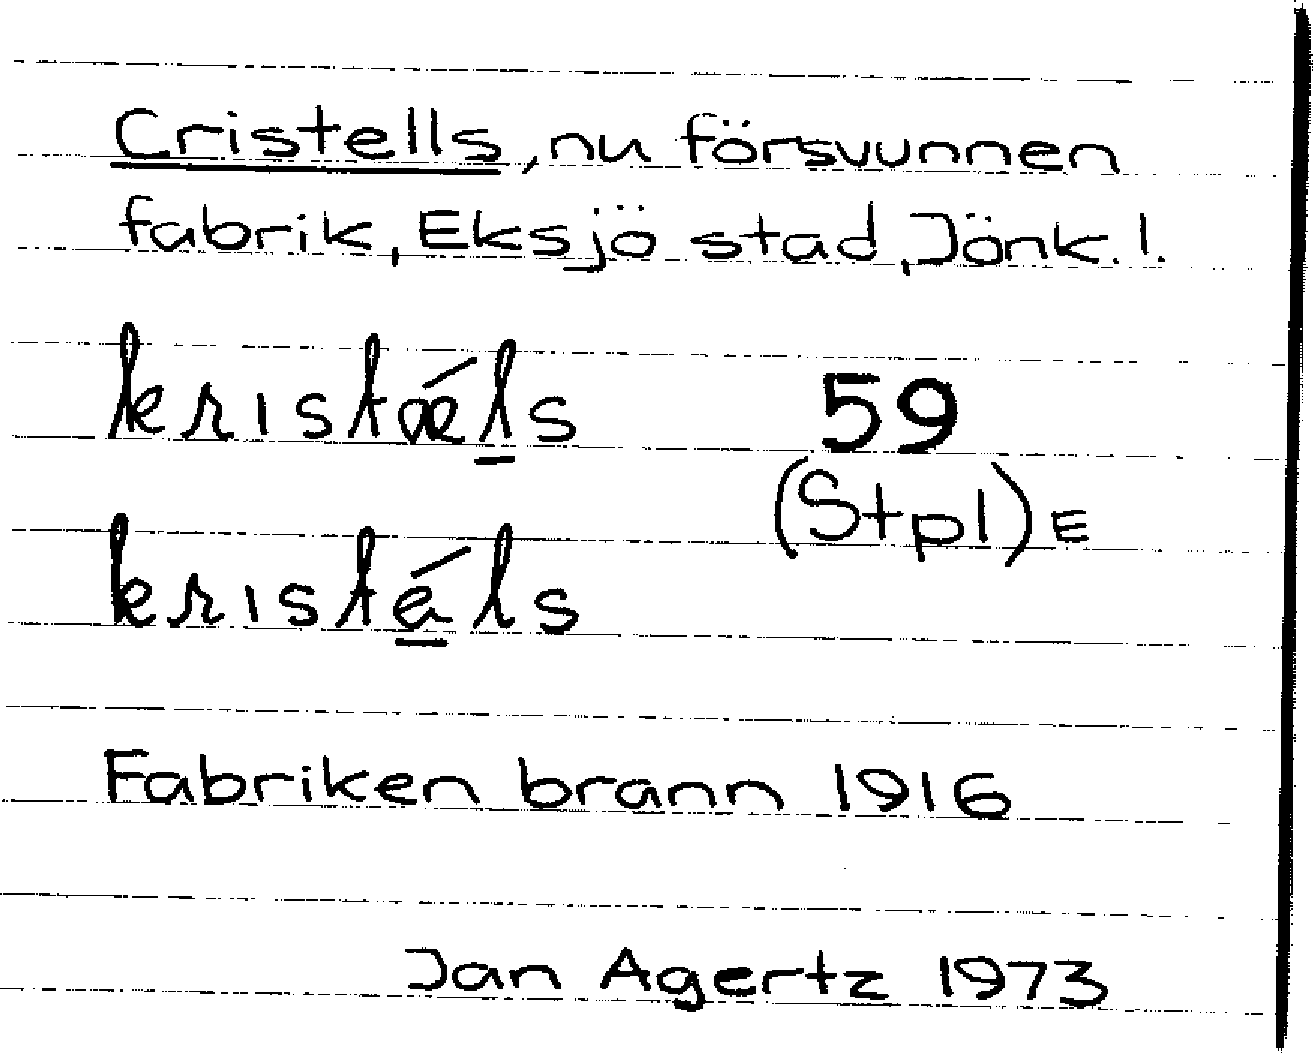 Cristells, nu försvunnen
fabrik, Eksjö stad, Jönk. l.
kristǽls 59
(Stpl) E
kristéls
Fabriken brann 1916
Jan Agertz 1973